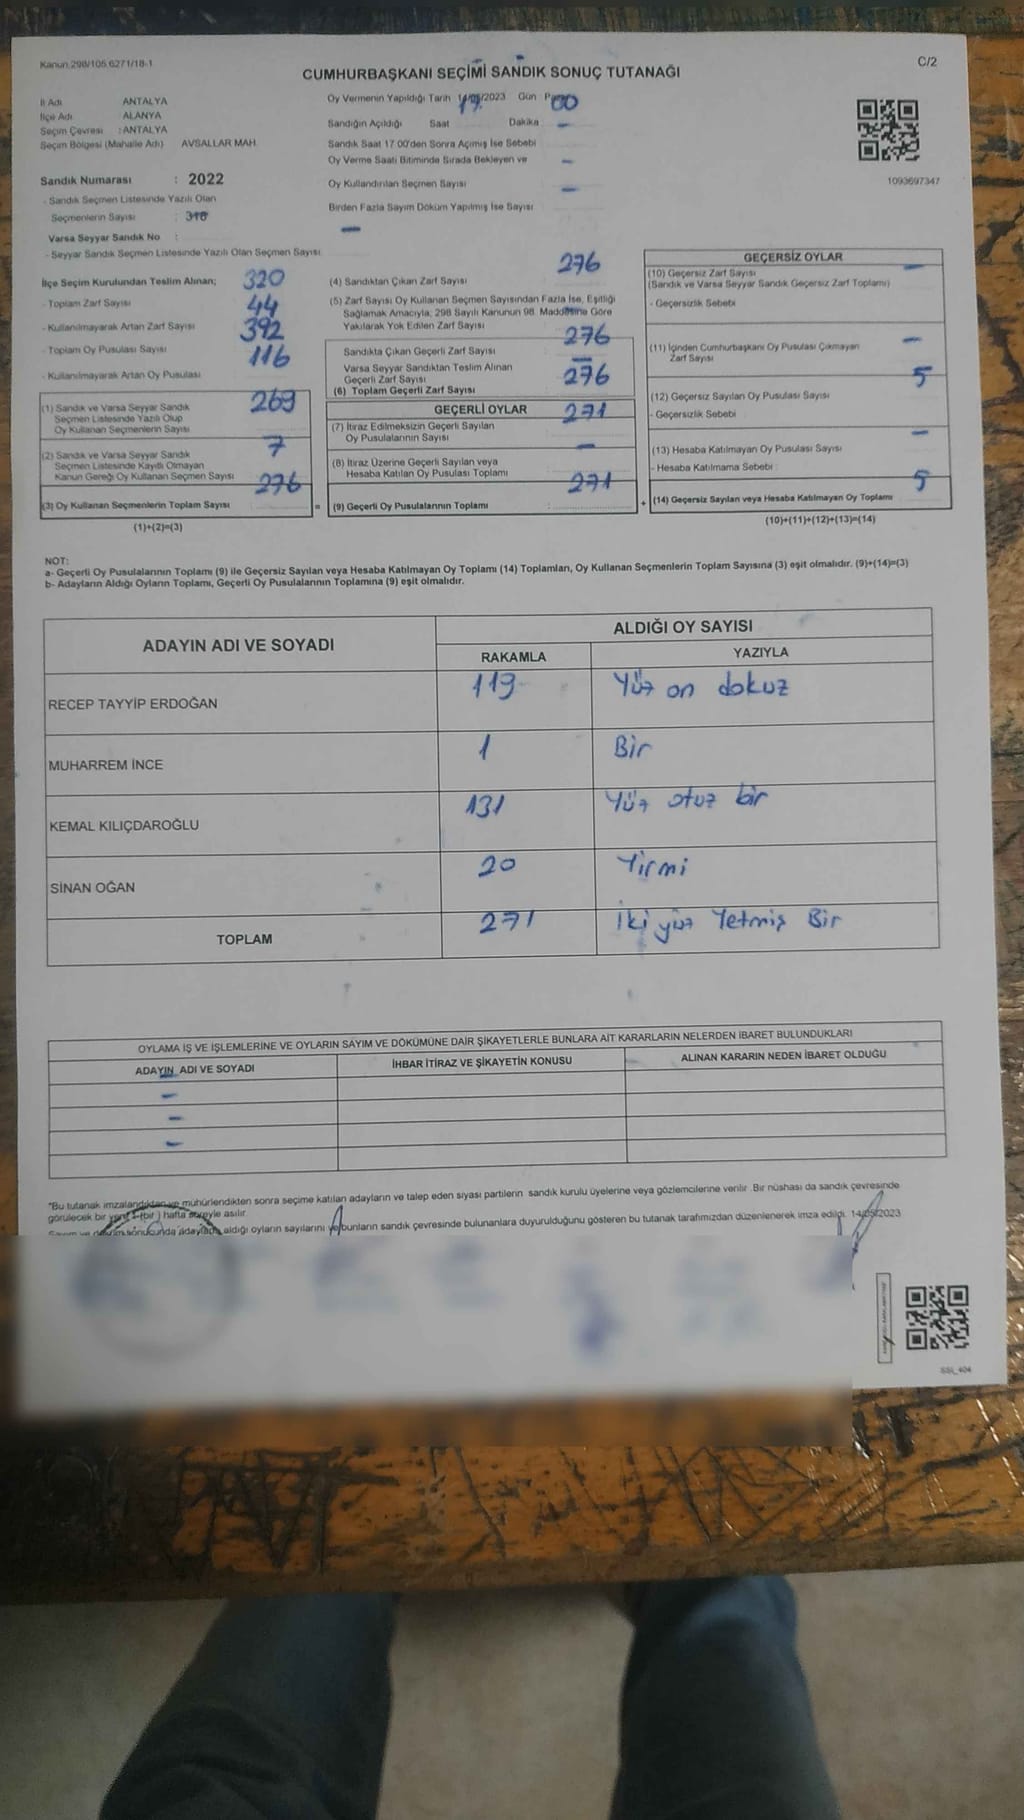 Kanun.298/105.6271/18-1
C/2
CUMHURBAŞKANI SEÇİMİ SANDIK SONUÇ TUTANAĞI
İl Adı ANTALYA
İlçe Adı ALANYA
Seçim Çevresi : ANTALYA
Seçim Bölgesi (Mahalle Adı) AVSALLAR MAH.
Sandık Numarası : 2022
- Sandık Seçmen Listesinde Yazılı Olan
Seçmenlerin Sayısı : 318
Varsa Seyyar Sandık No :
- Seyyar Sandık Seçmen Listesinde Yazılı Olan Seçmen Sayısı
Oy Vermenin Yapıldığı Tarih 14/05/2023 Gün
Sandığın Açıldığı Saat 17 Dakika 00
Sandık Saat 17.00'den Sonra Açımış İse Sebebi -
Oy Verme Saati Bitiminde Sırada Bekleyen ve
Oy Kullandırılan Seçmen Sayısı -
Birden Fazla Sayım Döküm Yapılmış İse Sayısı -
1093697347
İlçe Seçim Kurulundan Teslim Alınan;
- Toplam Zarf Sayısı 320
- Kullanılmayarak Artan Zarf Sayısı 44
- Toplam Oy Pusulası Sayısı 392
- Kullanılmayarak Artan Oy Pusulası 116
(1) Sandık ve Varsa Seyyar Sandık
Seçmen Listesinde Yazılı Olup
Oy Kullanan Seçmenlerin Sayısı 269
(2) Sandık ve Varsa Seyyar Sandık
Seçmen Listesinde Kayıtlı Olmayan
Kanun Gereği Oy Kullanan Seçmen Sayısı 7
(3) Oy Kullanan Seçmenlerin Toplam Sayısı 276
(1)+(2)=(3)
(4) Sandıktan Çıkan Zarf Sayısı 276
(5) Zarf Sayısı Oy Kullanan Seçmen Sayısından Fazla İse, Eşitliği
Sağlamak Amacıyla; 298 Sayılı Kanunun 98. Maddesine Göre
Yakılarak Yok Edilen Zarf Sayısı -
Sandıkta Çıkan Geçerli Zarf Sayısı 276
Varsa Seyyar Sandıktan Teslim Alınan
Geçerli Zarf Sayısı -
(6) Toplam Geçerli Zarf Sayısı 276
GEÇERLİ OYLAR
(7) İtiraz Edilmeksizin Geçerli Sayılan
Oy Pusulalarının Sayısı 271
(8) İtiraz Üzerine Geçerli Sayılan veya
Hesaba Katılan Oy Pusulası Toplamı -
= (9) Geçerli Oy Pusulalarının Toplamı : 271
GEÇERSİZ OYLAR
(10) Geçersiz Zarf Sayısı -
(Sandık ve Varsa Seyyar Sandık Geçersiz Zarf Toplamı)
- Geçersizlik Sebebi
(11) İçinden Cumhurbaşkanı Oy Pusulası Çıkmayan
Zarf Sayısı -
(12) Geçersiz Sayılan Oy Pusulası Sayısı 5
- Geçersizlik Sebebi
(13) Hesaba Katılmayan Oy Pusulası Sayısı -
- Hesaba Katılmama Sebebi :
+ (14) Geçersiz Sayılan veya Hesaba Katılmayan Oy Toplamı 5
(10)+(11)+(12)+(13)=(14)
NOT:
a- Geçerli Oy Pusulalarının Toplamı (9) ile Geçersiz Sayılan veya Hesaba Katılmayan Oy Toplamı (14) Toplamları, Oy Kullanan Seçmenlerin Toplam Sayısına (3) eşit olmalıdır. (9)+(14)=(3)
b- Adayların Aldığı Oyların Toplamı, Geçerli Oy Pusulalarının Toplamına (9) eşit olmalıdır.
ADAYIN ADI VE SOYADI ALDIĞI OY SAYISI
RAKAMLA YAZIYLA
RECEP TAYYİP ERDOĞAN 119 Yüz on dokuz
MUHARREM İNCE 1 Bir
KEMAL KILIÇDAROĞLU 131 Yüz otuz bir
SİNAN OĞAN 20 Yirmi
TOPLAM 271 İki yüz Yetmiş Bir
OYLAMA İŞ VE İŞLEMLERİNE VE OYLARIN SAYIM VE DÖKÜMÜNE DAİR ŞİKAYETLERLE BUNLARA AİT KARARLARIN NELERDEN İBARET BULUNDUKLARI
ADAYIN ADI VE SOYADI İHBAR İTİRAZ VE ŞİKAYETİN KONUSU ALINAN KARARIN NEDEN İBARET OLDUĞU
-
-
-
*Bu tutanak imzalandıktan ve mühürlendikten sonra seçime katılan adayların ve talep eden siyasi partilerin sandık kurulu üyelerine veya gözlemcilerine verilir. Bir nüshası da sandık çevresinde
görülecek bir yere 1 (bir) hafta süreyle asılır.
Sayım ve döküm sonucunda adayların aldığı oyların sayılarını ve bunların sandık çevresinde bulunanlara duyurulduğunu gösteren bu tutanak tarafımızdan düzenlenerek imza edildi. 14/05/2023